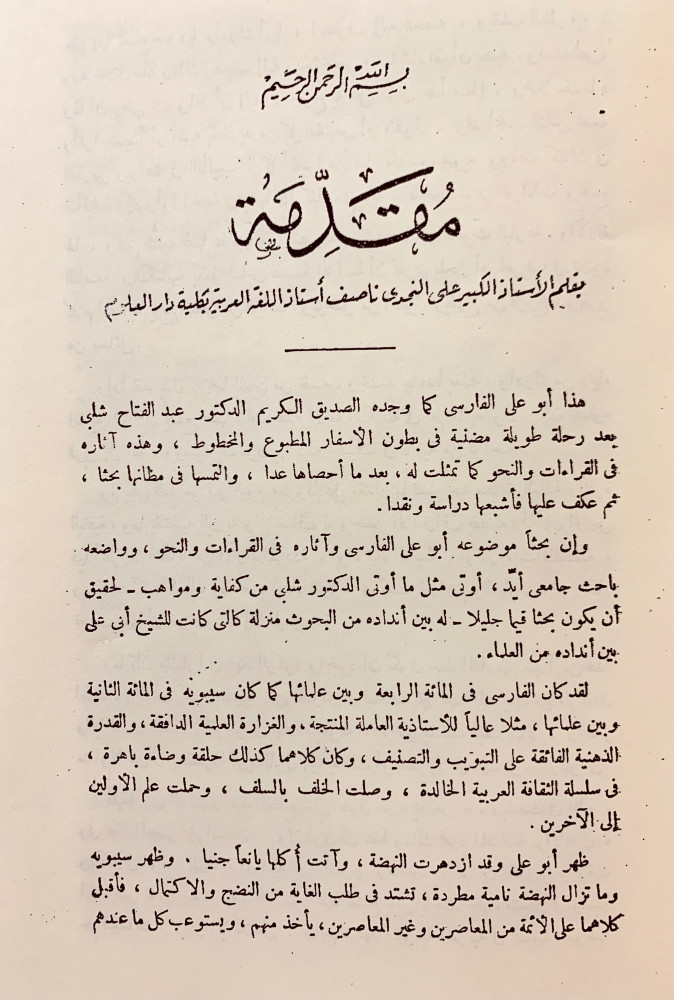 بسم الله الرحمن الرحيم
مُقَدِّمَة
بقلم الأستاذ الكبير على النجدى ناصف أستاذ اللغة العربية بكلية دار العلوم
هذا أبو على الفارسى كما وجده الصديق الكريم الدكتور عبد الفتاح شلبى
بعد رحلة طويلة مضنية فى بطون الأسفار المطبوع والمخطوط ، وهذه آثاره
فى القراءات والنحو كما تمثلت له ، بعد ما أحصاها عدا ، والتمسها فى مظانها بحثا ،
ثم عكف عليها فأشبعها دراسة ونقدا .
وإن بحثاً موضوعه أبو على الفارسى وآثاره فى القراءات والنحو ، وواضعه
باحث جامعى أيّد ، أوتى مثل ما أوتى الدكتور شلبى من كفاية ومواهب ـ لحقيق
أن يكون بحثا قيما جليلا ـ له بين أنداده من البحوث منزلة كالتى كانت للشيخ أبى على
بين أنداده من العلماء .
لقد كان الفارسى فى المائة الرابعة وبين علمائها كما كان سيبويه فى المائة الثانية
وبين علمائها ، مثلا عالياً للأستاذية العاملة المنتجة ، والغزارة العلمية الدافقة ، والقدرة
الذهنية الفائقة على التبويب والتصنيف ، وكان كلاهما كذلك حلقة وضاءة باهرة ،
فى سلسلة الثقافة العربية الخالدة ، وصلت الخلف بالسلف ، وحملت علم الأولين
إلى الآخرين .
ظهر أبو على وقد ازدهرت النهضة ، وآتت أُكلها يانعاً جنيا . وظهر سيبويه
وما تزال النهضة نامية مطردة ، تشتد فى طلب الغاية من النضج والاكتمال ، فأقبل
كلاهما على الأئمة من المعاصرين وغير المعاصرين ، يأخذ منهم ، ويستوعب كل ما عندهم